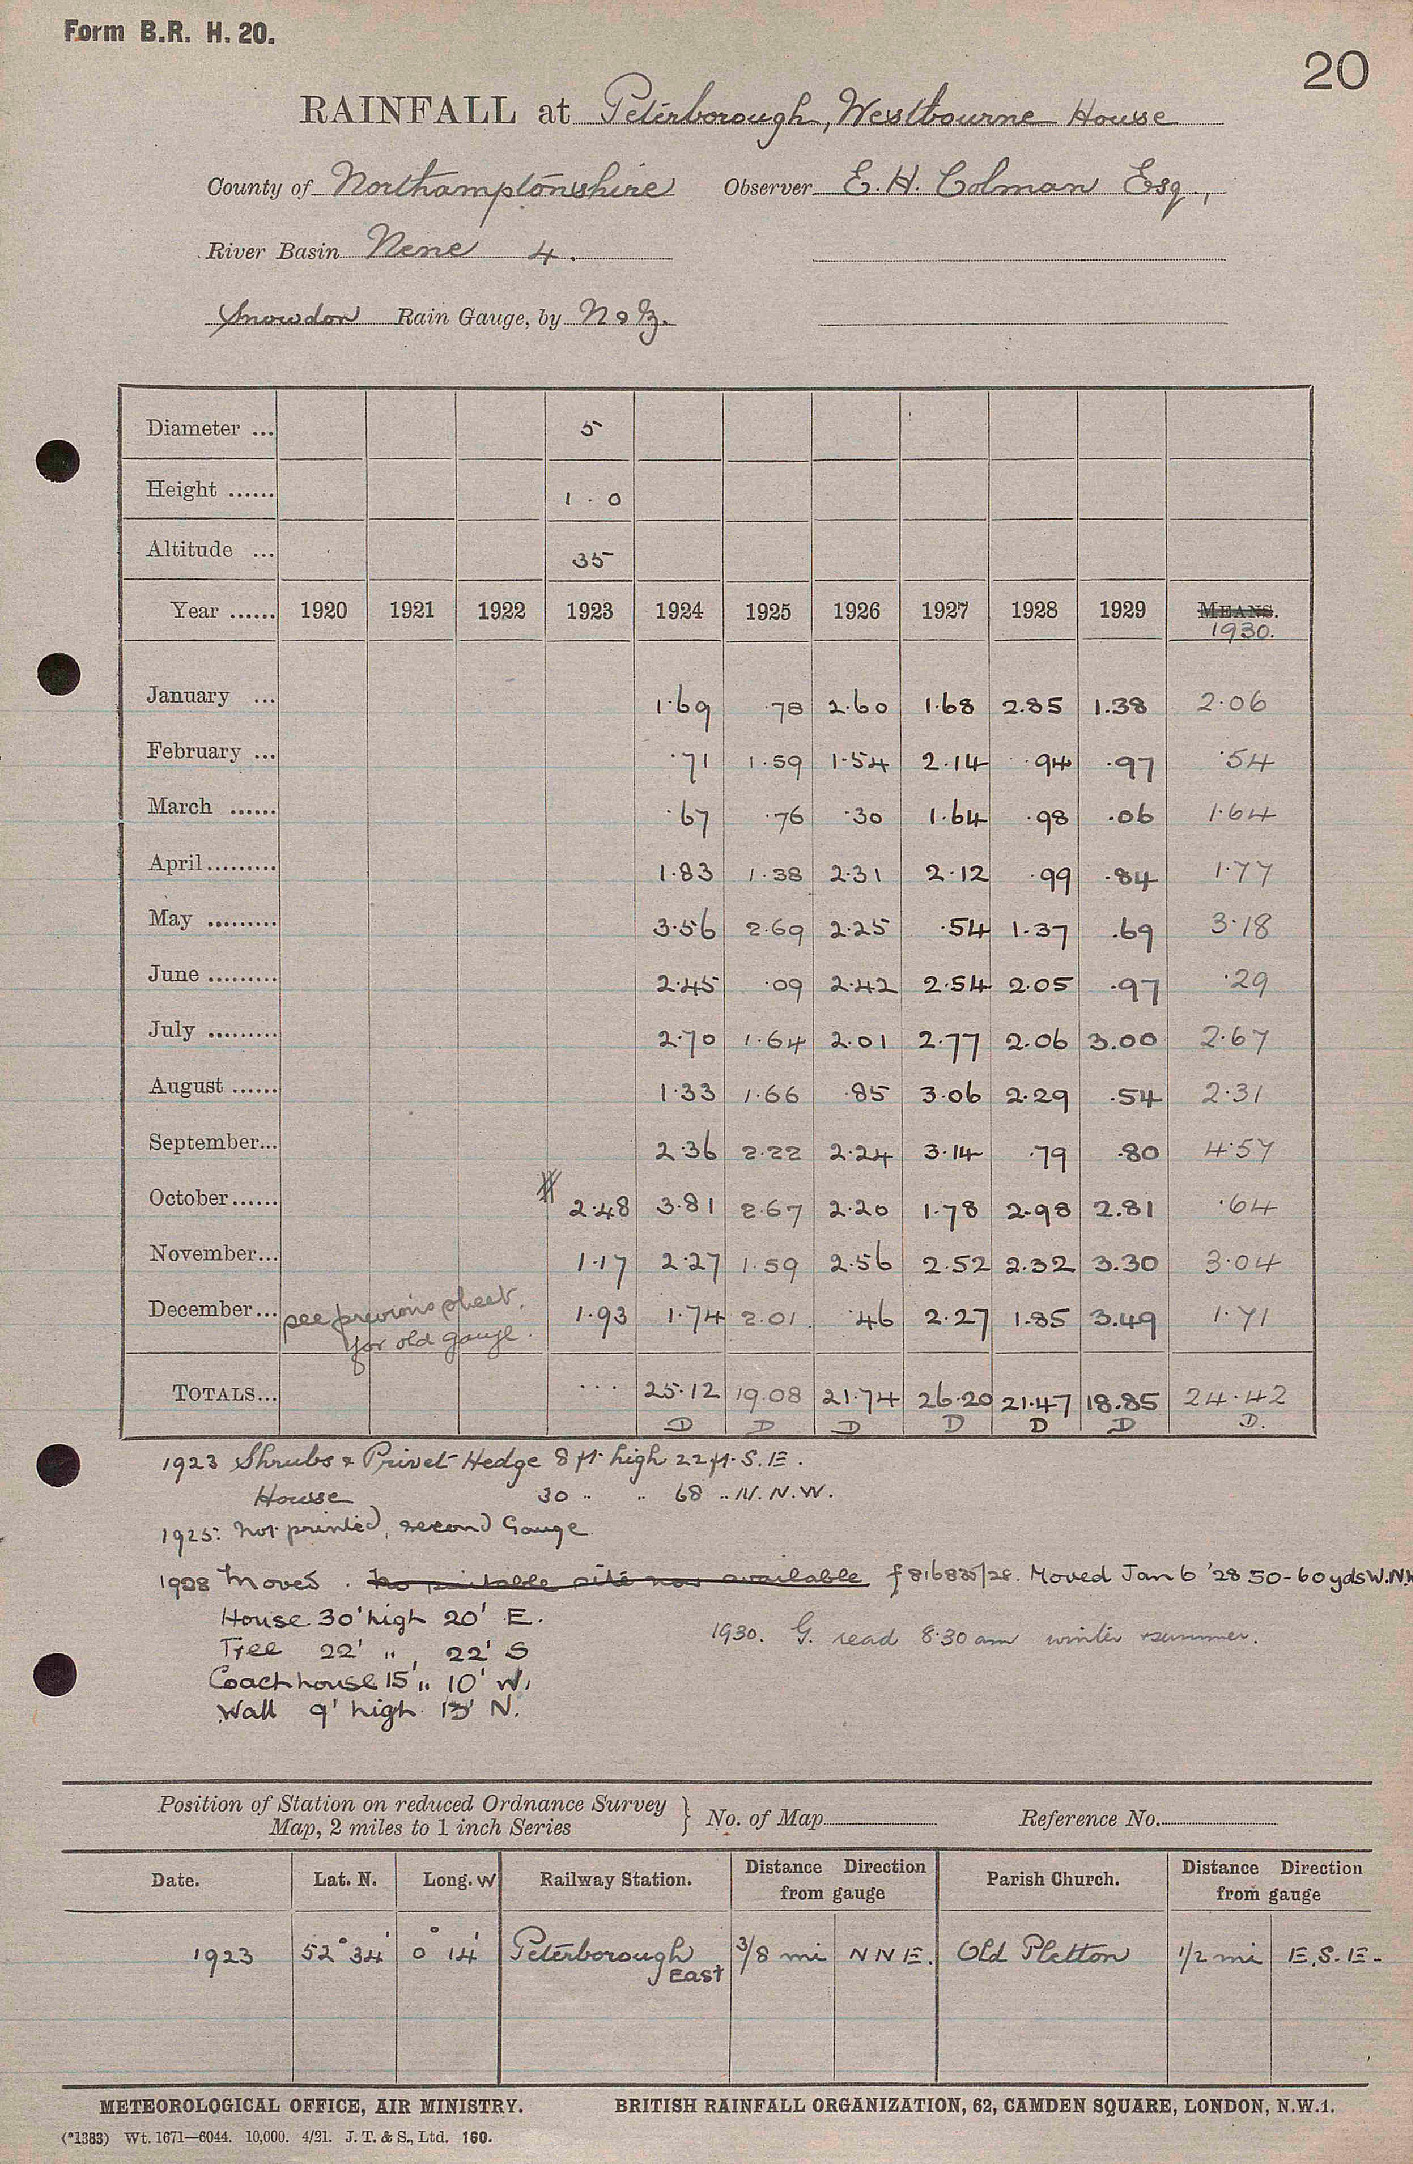 Form B.R. H. 20.
20
RAINFALL at Peterborough, Westbourne House
County of Northamptonshire Observer E. H. Colman Esq.,
River Basin Nene 4.
Snowdon Rain Gauge, by N & Z.
Diameter ... 5
Height ...... 1 . 0
Altitude ... 35
Year ...... 1920 1921 1922 1923 1924 1925 1926 1927 1928 1929 MEANS.
1930.
January ... 1.69 .78 2.60 1.68 2.85 1.38 2.06
February ... .71 1.59 1.54 2.14 .94 .97 .54
March ...... .67 .76 .30 1.64 .98 .06 1.64
April ......... 1.83 1.38 2.31 2.12 .99 .84 1.77
May ......... 3.56 2.69 2.25 .54 1.37 .69 3.18
June ......... 2.45 .09 2.42 2.54 2.05 .97 .29
July ......... 2.70 1.64 2.01 2.77 2.06 3.00 2.67
August ...... 1.33 1.66 .85 3.06 2.29 .54 2.31
September... 2.36 2.22 2.24 3.14 .79 .80 4.57
October ...... 2.48 3.81 2.67 2.20 1.78 2.98 2.81 .64
November... 1.17 2.27 1.59 2.56 2.52 2.32 3.30 3.04
December... see previous sheet 1.93 1.74 2.01 .46 2.27 1.85 3.49 1.71
for old gauge.
TOTALS... ... 25.12 19.08 21.74 26.20 21.47 18.85 24.42
D D D D D D D.
1923 Shrubs & Privet Hedge 8 ft. high 22 ft. S.E.
House 30 .. .. 68 .. N.N.W.
1925: Not printed, second Gauge
1928 Moved. No suitable site now available f816835/28. Moved Jan 6 '28 50-60 yds W.N.W
House 30' high 20' E.
1930. G. read 8.30 am winter & summer.
Tree 22' ,, 22' S
Coach house 15' ,, 10' W.
Wall 9' high 13' N.
Position of Station on reduced Ordnance Survey Map, 2 miles to 1 inch Series } No. of Map Reference No.
Date. Lat. N. Long. W Railway Station. Distance Direction from gauge Parish Church. Distance Direction from gauge
1923 52° 34' 0° 14' Peterborough East 3/8 mi NNE. Old Fletton 1/2 mi E.S.E.
METEOROLOGICAL OFFICE, AIR MINISTRY. BRITISH RAINFALL ORGANIZATION, 62, CAMDEN SQUARE, LONDON, N.W.1.
(*1383) Wt. 1671—6044. 10,000. 4/21. J. T. & S., Ltd. 160.